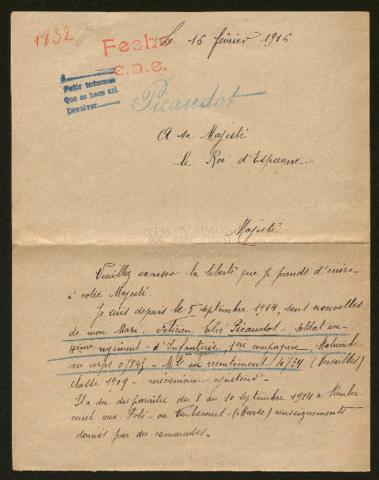 1832
le 16 février 1916
Fecho
c.o.e.
A
Pedir informes
Que se hace así
Devolver
Picaudot
A sa Majesté
le Roi d'Espagne
Majesté
Veuillez excuser la liberté que je prends d'écrire
à votre Majesté
Je suis depuis le 5 septembre 1914, sans nouvelles
de mon Mari: Elie Picaudot - Soldat au
régiment d'Infanterie 1ère compagnie, Matricule
au corps - Mle au recrutement - (Versailles)
classe 1909 - mécanicien ajusteur -
Il a du disparaître du 8 au 10 septembre 1914 à
aux Pots ou (Marne) renseignements
donnés par des camarades.